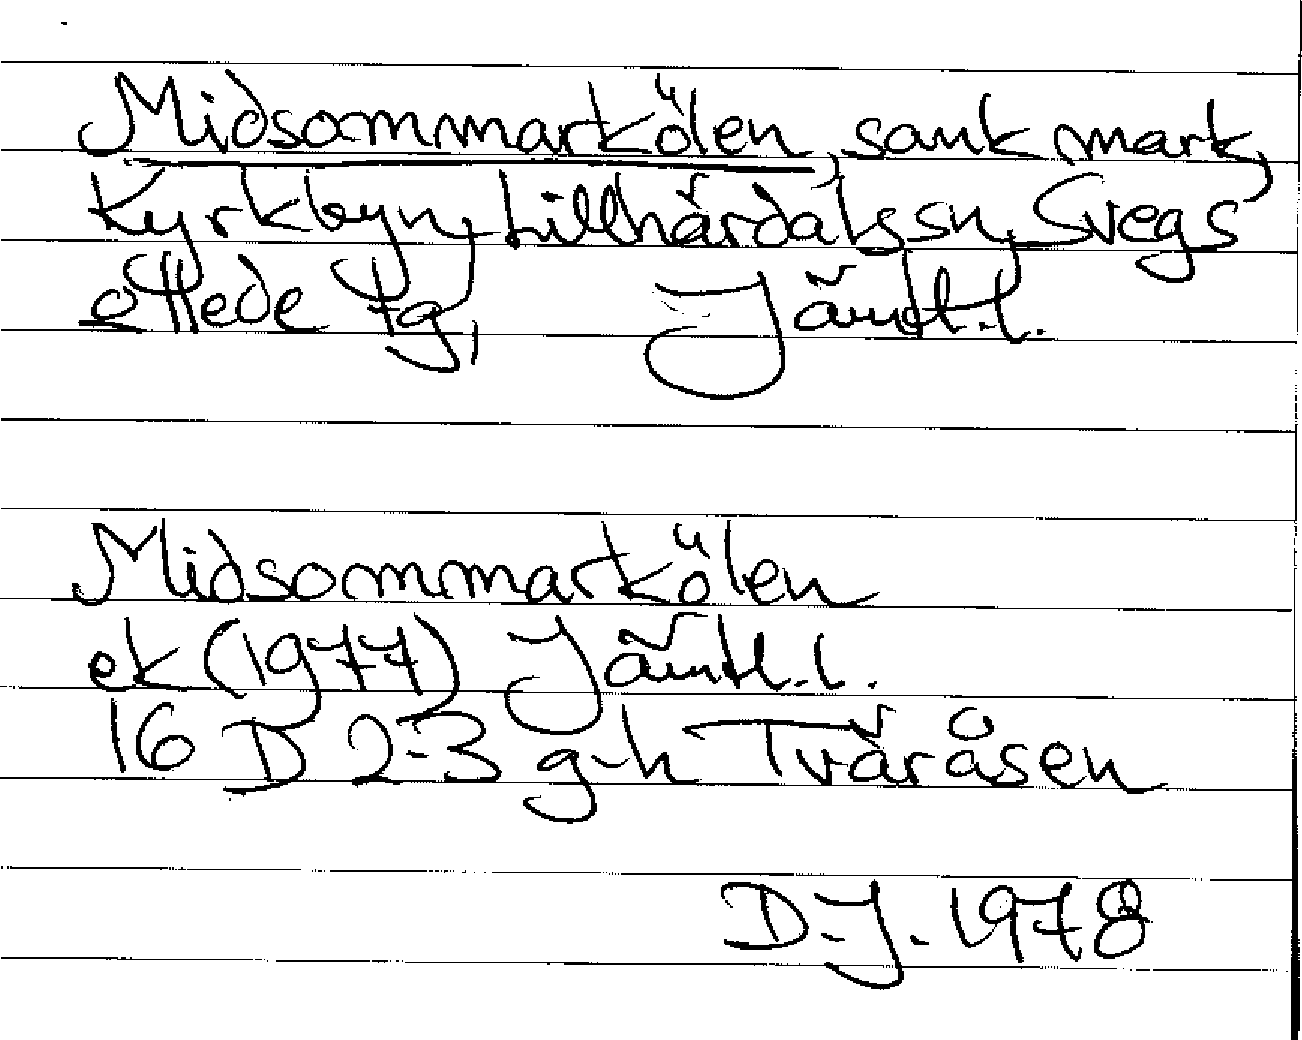 Midsommarkölen, sank mark,
Kyrkbyn, Lillhärdals sn, Svegs
Hede tg, Jämtl. l.
Midsommarkölen
ek (1977) Jämtl. l.
16 D 2-3 g-h Tväråsen
D.J. 1978